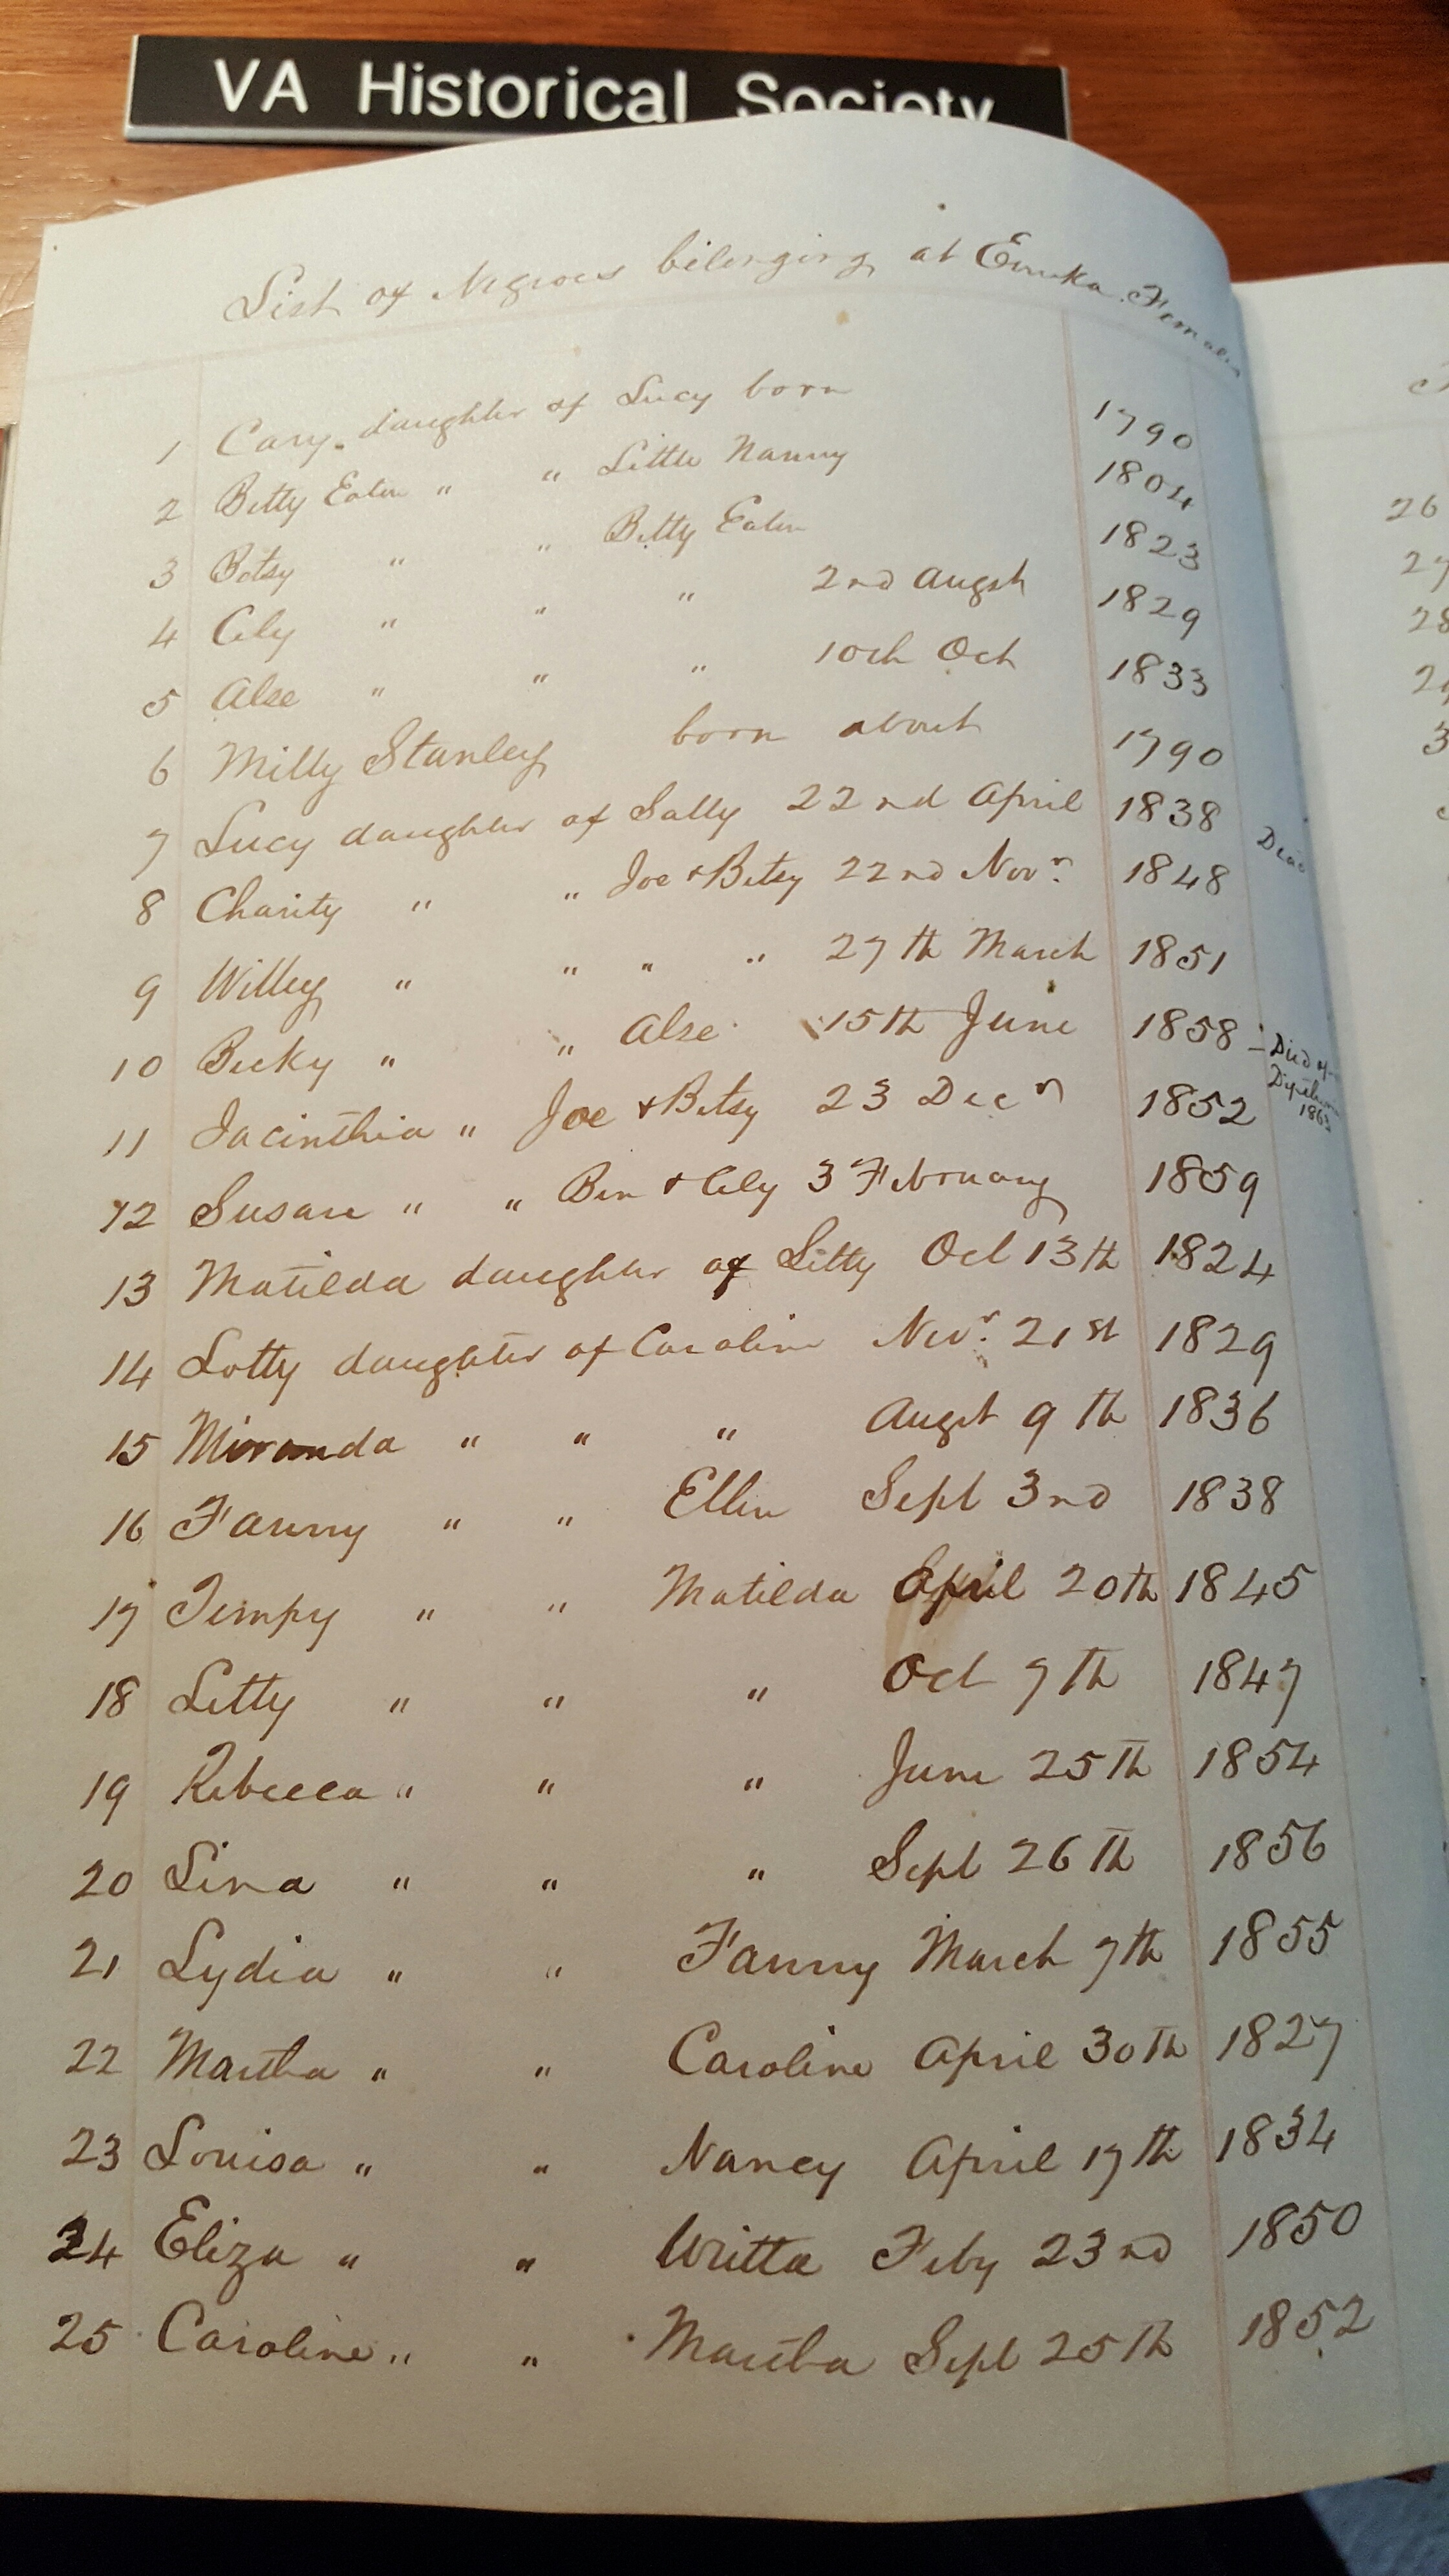 VA Historical Society
List of Negroes belonging at Eureka. Females
1 Cary. daughter of Lucy born 1790
2 Betty Eaten " " Little Nanny 1804
3 Betsy " " Betty Eaten 1823
4 Cely " " " 2nd Augst 1829
5 Alse " " " 10th Oct 1833
6 Milly Stanley born about 1790
7 Lucy daughter of Sally 22nd April 1838 Dead
8 Charity " " Joe & Betsy 22nd Novr. 1848
9 Willey " " " " 27th March 1851
10 Becky " " Alse 15th June 1858 - Died of
1863
11 Jacinthia " Joe & Betsy 23 Decr 1852
12 Susan " " Ben & Cely 3 February 1859
13 Matilda daughter of Litty Oct 13th 1824
14 Lotty daughter of Caroline Novr. 21st 1829
15 Miranda " " " Augst 9th 1836
16 Fanny " " Ellen Sept 3nd 1838
17 Tempy " " Matilda April 20th 1845
18 Letty " " " Oct 7th 1847
19 Rebecca " " " June 25th 1854
20 Lina " " " Sept 26th 1856
21 Lydia " " Fanny March 7th 1855
22 Martha " " Caroline April 30th 1827
23 Louisa " " Nancy April 17th 1834
24 Eliza " " Writta Feby 23nd 1850
25 Caroline " " Martha Sept 25th 1852
26
28